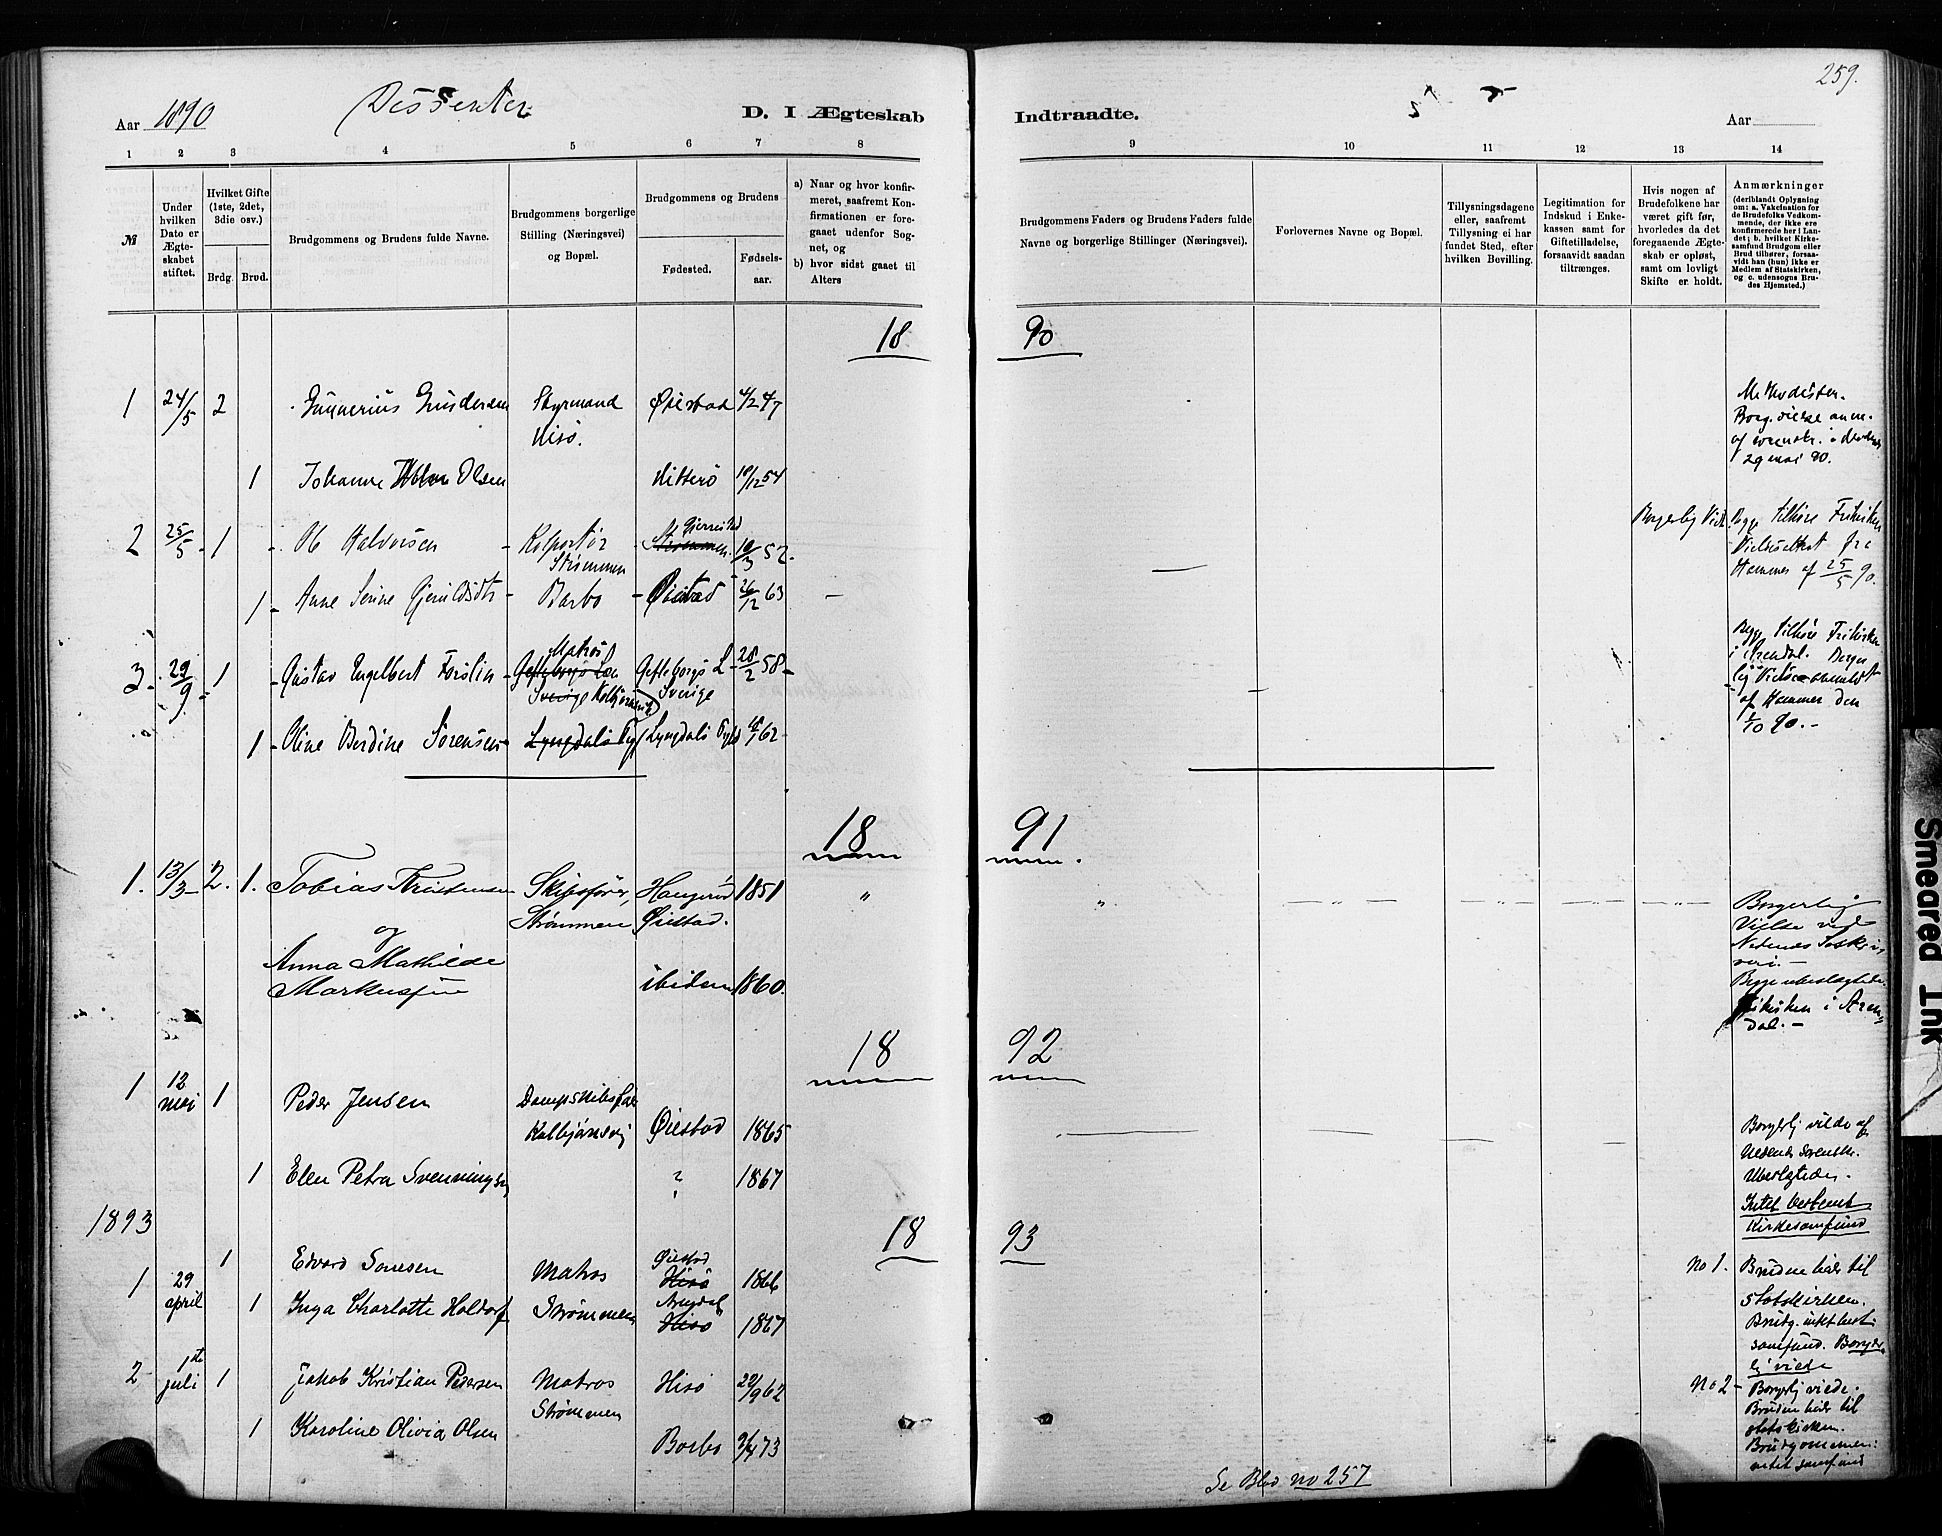 259.
Aar 1890
Dissenter
D. I Ægteskab
Indtraadte.
Aar
1 2 3 4 5 6 7 8
9 10 11 12 13 14
№
Under hvilken Dato er Ægteskabet stiftet.
Hvilket Gifte (1ste, 2det, 3die osv.)
Brdg. Brud.
Brudgommens og Brudens fulde Navne.
Brudgommens borgerlige Stilling (Næringsvei) og Bopæl.
Brudgommens og Brudens
Fødested.
Fødselsaar.
a) Naar og hvor konfirmeret, saafremt Konfirmationen er foregaaet udenfor Sognet, og
b) hvor sidst gaaet til Alters
Brudgommens Faders og Brudens Faders fulde Navne og borgerlige Stillinger (Næringsvei).
Forlovernes Navne og Bopæl.
Tillysningsdagene eller, saafremt Tillysning ei har fundet Sted, efter hvilken Bevilling.
Legitimation for Indskud i Enkekassen samt for Giftetilladelse, forsaavidt saadan tiltrænges.
Hvis nogen af Brudefolkene har været gift før, hvorledes da det foregaaende Ægteskab er opløst, samt om lovligt Skifte er holdt.
Anmærkninger (deriblandt Oplysning om: a. Vakcination for de Brudefolks Vedkommende, der ikke ere konfirmerede her i Landet; b. hvilket Kirkesamfund Brudgom eller Brud tilhører, forsaavidt han (hun) ikke er Medlem af Statskirken, og c. udensogns Brudes Hjemsted.)
18 90
1 24/5 2 Gunnerius Gundersen Styrmand Øiestad 4/2 47 Methodister.
Hisö. Borg. vielse
29 mai 90.
1 Johanne Olsen Hitterö 10/12 54
2 25/5 1 Ole Halvorsen Kolportör Gjerrestad Strømmen 10/3 52 Borgerlig Viet. Begge tilhöre Frikirken
Strömmen Vielsesattest fra
Hammer af 25/5 90.
1 Anne Serine Gjeruldsdtr Barbo Öiestad 26/12 63
3 29/9 1 Gustav Engelbert Forslin Matrös Gefleborgs Län Gefleborgs L 28/2 58 Begge tilhöre Frikirken
Sverige Kolbjørnsvik Sverige i Arendal. Borger
af Hammer den
1/10 90.
1 Oline Berdine Sörensen Lyngdals Lyngdals 62
18 91
1. 13/3 2. 1. Tobias Kristensen Skibsfører, 1851 Borgerlig
Strømmen Øiestad. Vielse ved
og Nedenes Sorenskriveri.
Anna Mathilde ibidem 1860. Begge
Markussen Frikirken i Arendal.
18 92
1 12 mai 1 Peder Jensen Dampskibsfører
Kolbjörnsvig Øiestad 1865 Borgerlig viede af
Nedenes Sorensk.
1 Elen Petra Svenningsen ? 1867
Intet bestemt
Kirkesamfund
1893 18 93
1 29 april 1 Edvard Matros Øiestad Hisö 1866 No 1. Bruden hører til
Statskirken.
1 Inga Charlotte Holdorf Strømmen Arendal Hisö 1867 Brudg. ikke best.
samfund. Borgerlig viede
2 1ste juli 1 Jakob Kristian Pedersen Matros Hisö 22/9 62 No 2 – Borgerlig viede.
Strømmen Bruden hører til
1 Karoline Olivia Olsen Barbo 73 statskirken.
Brudgommen:
intet samfund
Se Blad no 257
Smeared Ink